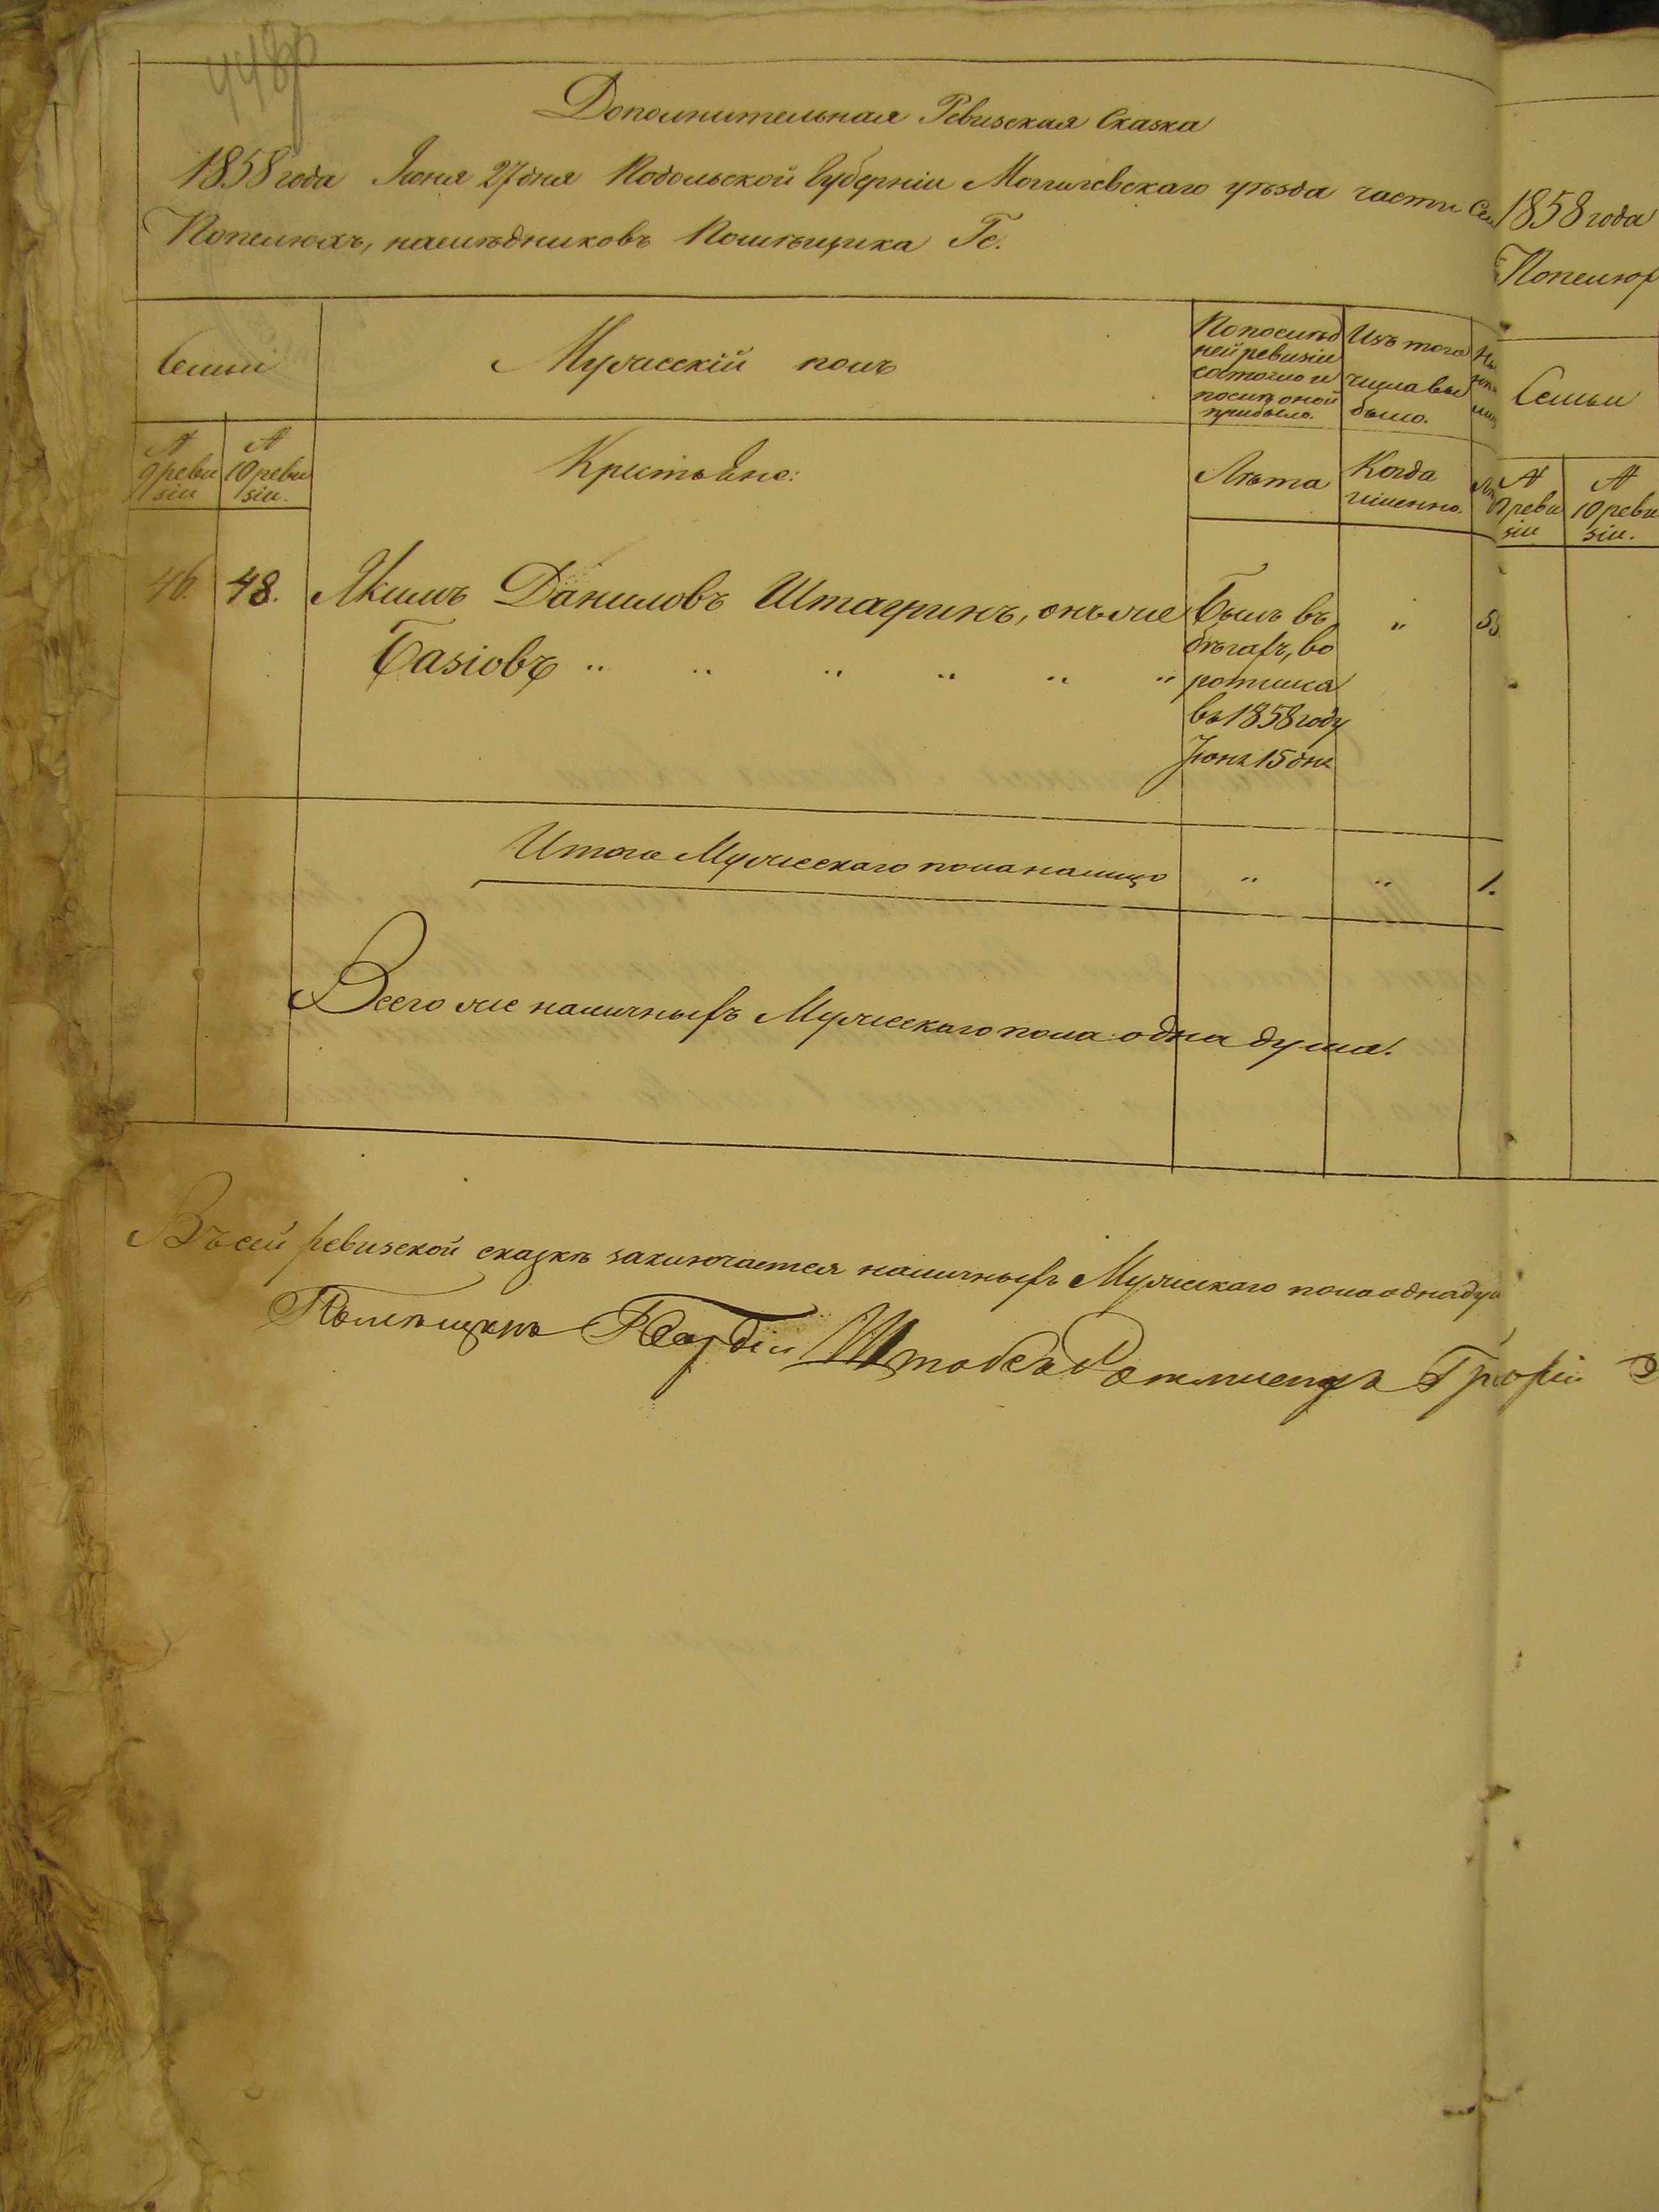 448об
Дополнительная Ревизская Сказка
1858 года Іюня 27 дня Подольской Губерніи Могилевскаго уѣзда части Сел
Попелюхъ, наслѣдниковъ Помѣщика Ге.
Семьи
Мужескій полъ
По послѣд
ней ревизіи
состояло и
послѣ оной
прибыло.
Изъ того
числа вы
было.
№
9 реви
зіи
№
10 реви
зіи.
Крестьяне:
Лѣта
Когда
именно.
46.
48.
Якимъ Даниловъ Штагринъ, онъ же
Базіовъ " " " " " "
былъ въ
бѣгахъ, во
ротился
въ 1858 году
Іюня 15 дня
"
Итого Мужескаго пола налицо " " 1.
Всего же наличныхъ Мужескаго пола одна душа.
Въ сей ревизской сказкѣ заключается наличныхъ Мужескаго пола одна ду
Помѣщикъ Штабсъ Ротмистръ
1858 года
Попелюх
Семьи
№
9 реви
зіи
№
10 реви
зіи.